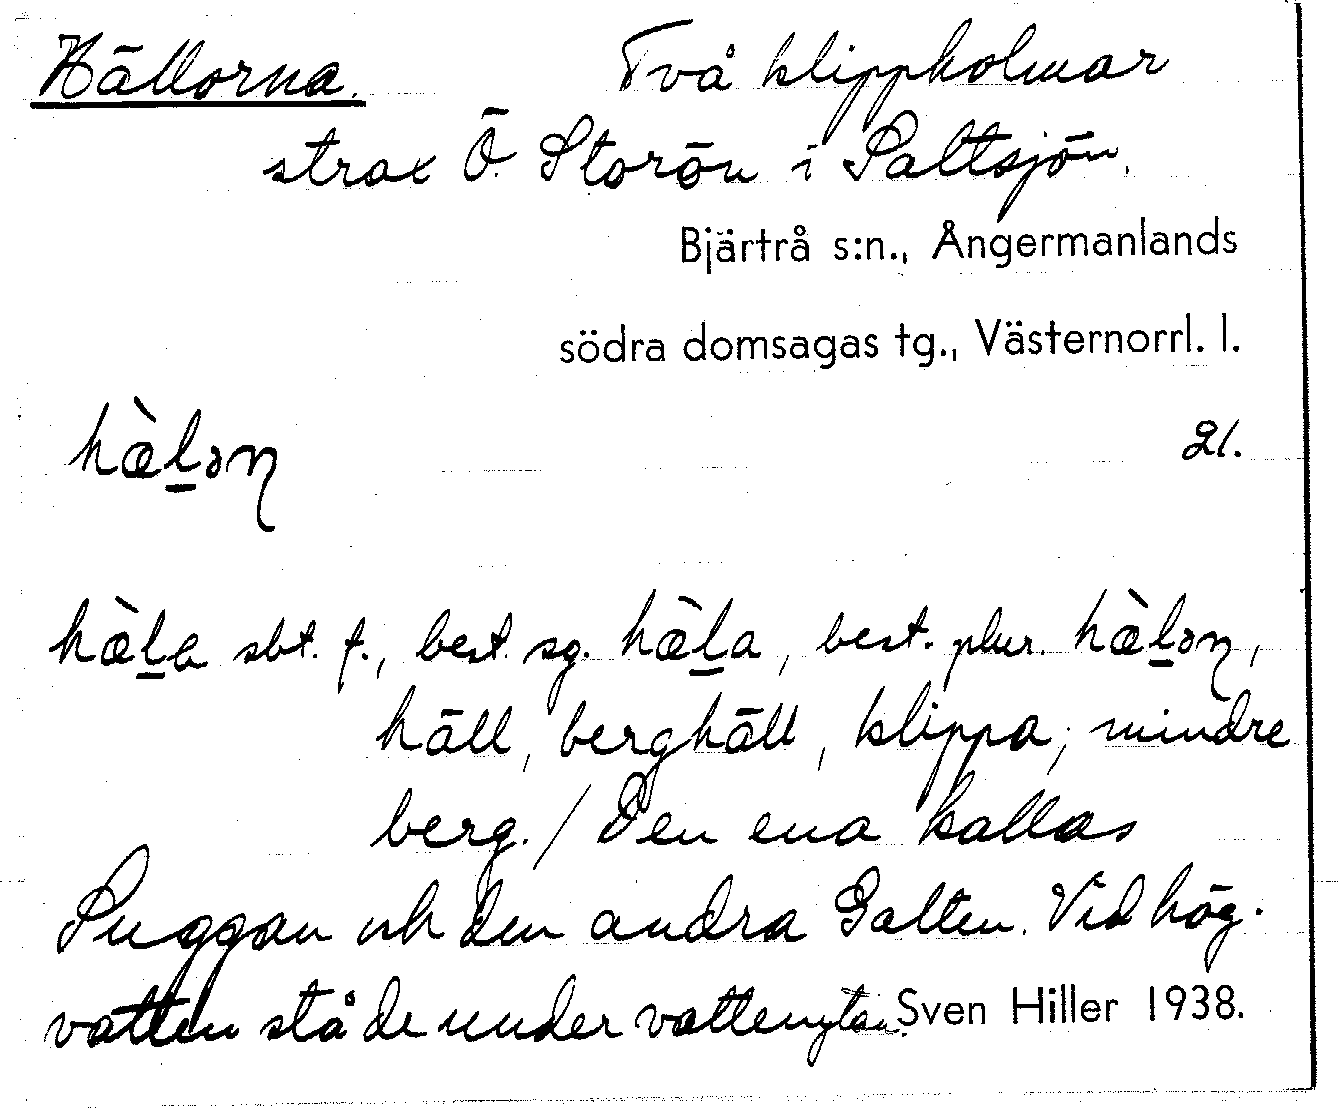 Hällorna. Två klippholmar
strax Ö. Storön i Saltsjön.
Bjärtrå s:n., Ångermanlands
södra domsagas tg., Västernorrl. l.
hæ̀l̠əɳ 21.
hæ̀l̠a sbt. f., best. sg. hæ̀l̠a, best. plur. hæ̀l̠əɳ,
häll, berghäll, klippa; mindre
berg. / Den ena kallas
Suggan och den andra Galten. Vid hög-
vatten stå de under vattenytan. Sven Hiller 1938.